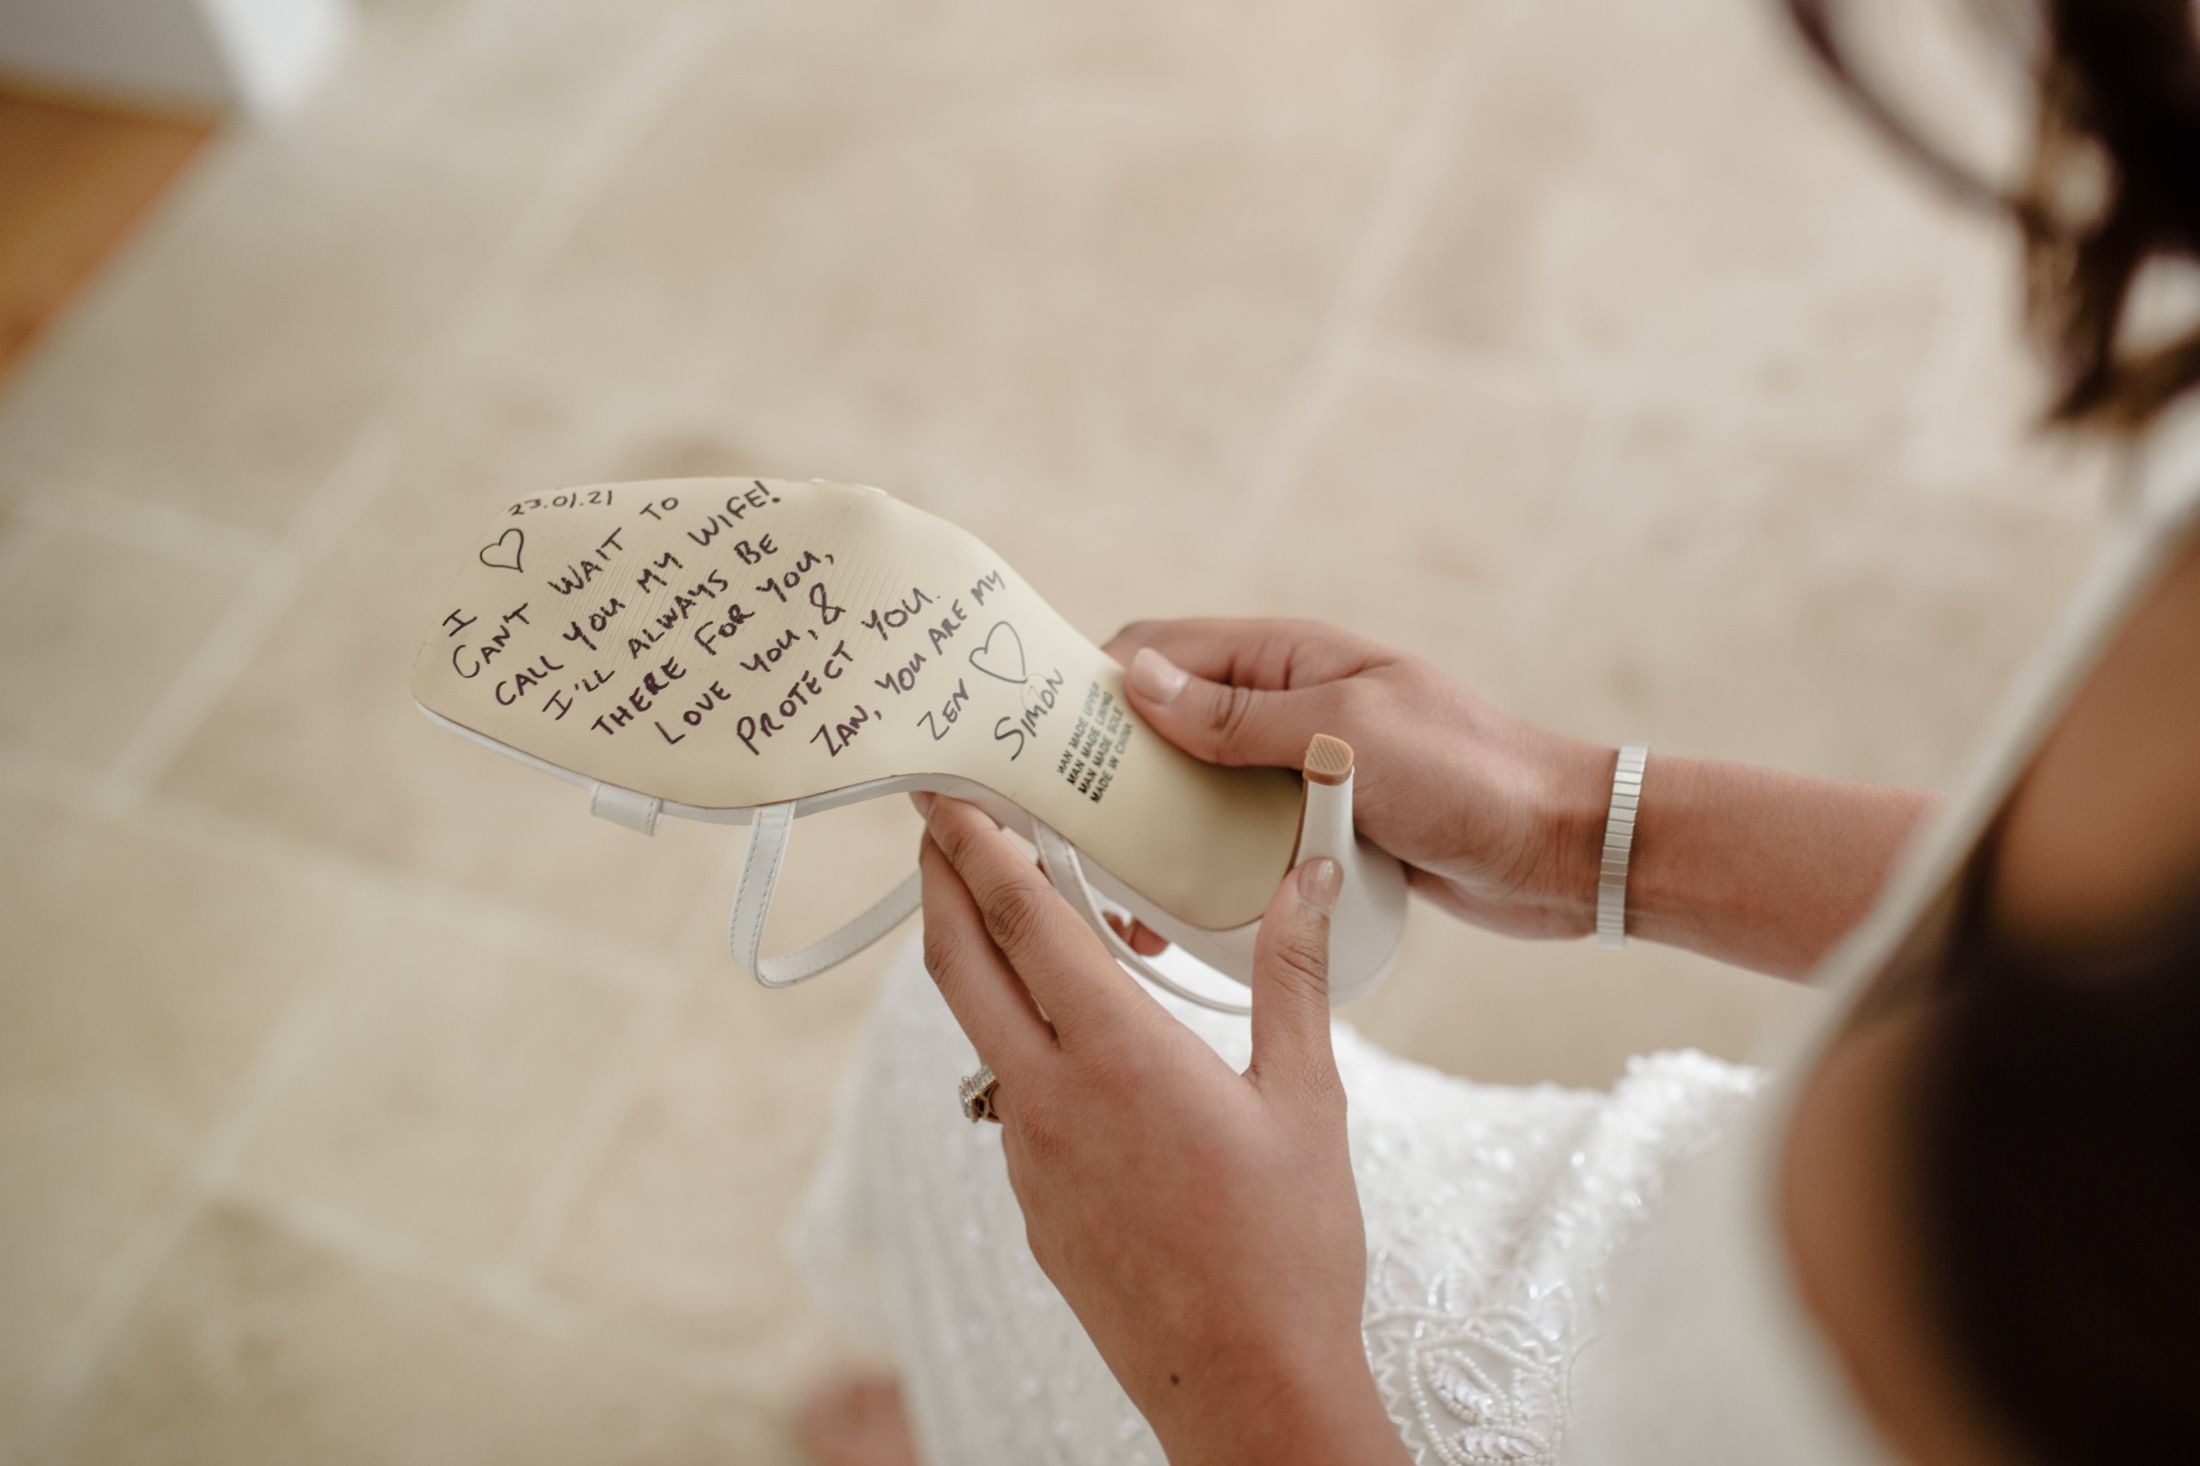 23.01.21
I
CAN'T WAIT TO
CALL YOU MY WIFE!
I'LL ALWAYS BE
THERE FOR YOU,
LOVE YOU, &
PROTECT YOU.
ZAN, YOU ARE MY
ZEN
SIMON
MAN MADE UPPER
MAN MADE LINING
MAN MADE SOLE
MADE IN CHINA